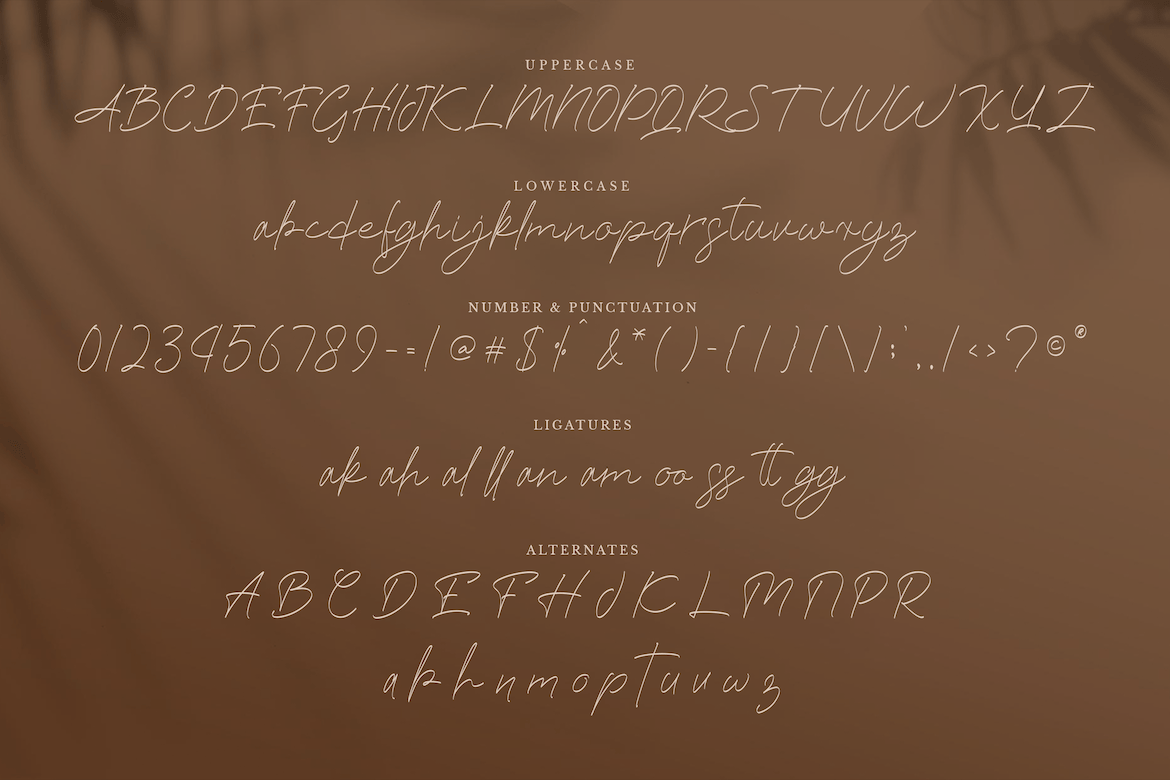 UPPERCASE
ABCDEFGHIJKLMNOPQRSTUVWXYZ
LOWERCASE
abcdefghijklmnopqrstuvwxyz
NUMBER & PUNCTUATION
0123456789-=!@#$%^&*()-{|}[\]:;',./<>?©®
LIGATURES
ak ah al ll an am oo ss tt gg
ALTERNATES
A B C D E F H J K L M N P R
a k h n m o p t u v w z